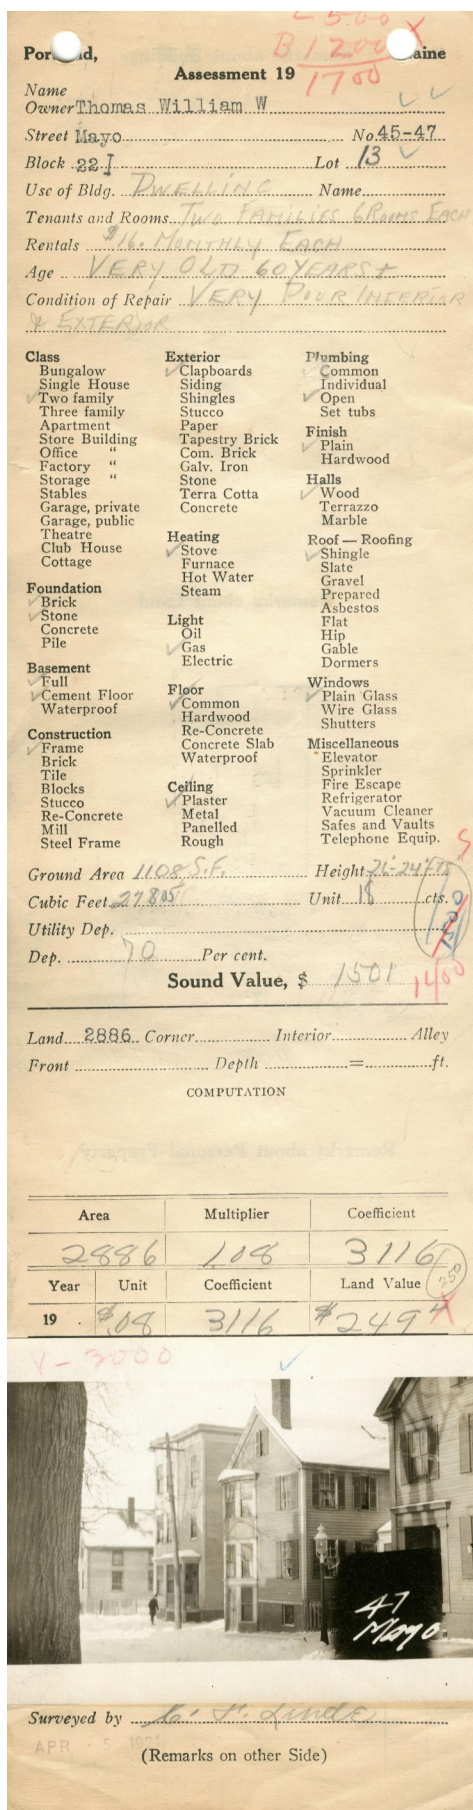 L 500 X
B 1200
1700
Portland, Maine
Assessment 19
Name
Owner Thomas William W
Street Mayo No. 45-47
Block 22 I Lot 13
Use of Bldg. DWELLING Name
Tenants and Rooms TWO FAMILIES 6 ROOMS EACH
Rentals $16. MONTHLY EACH
Age VERY OLD 60 YEARS +
Condition of Repair VERY POUR INTERIOR
& EXTERIOR
Class
Bungalow
Single House
✓ Two family
Three family
Apartment
Store Building
Office "
Factory "
Storage "
Stables
Garage, private
Garage, public
Theatre
Club House
Cottage
Foundation
✓ Brick
✓ Stone
Concrete
Pile
Basement
✓ Full
✓ Cement Floor
Waterproof
Construction
✓ Frame
Brick
Tile
Blocks
Stucco
Re-Concrete
Mill
Steel Frame
Exterior
✓ Clapboards
Siding
Shingles
Stucco
Paper
Tapestry Brick
Com. Brick
Galv. Iron
Stone
Terra Cotta
Concrete
Heating
✓ Stove
Furnace
Hot Water
Steam
Light
Oil
✓ Gas
Electric
Floor
✓ Common
Hardwood
Re-Concrete
Concrete Slab
Waterproof
Ceiling
✓ Plaster
Metal
Panelled
Rough
Plumbing
✓ Common
Individual
✓ Open
Set tubs
Finish
✓ Plain
Hardwood
Halls
✓ Wood
Terrazzo
Marble
Roof — Roofing
✓ Shingle
Slate
Gravel
Prepared
Asbestos
Flat
Hip
Gable
Dormers
Windows
✓ Plain Glass
Wire Glass
Shutters
Miscellaneous
Elevator
Sprinkler
Fire Escape
Refrigerator
Vacuum Cleaner
Safes and Vaults
Telephone Equip.
Ground Area 1108 S.F. Height
Cubic Feet 27805 Unit 18 cts.
Utility Dep.
Dep. 70 Per cent.
Sound Value, $ 1501 1400
Land 2886 Corner Interior Alley
Front Depth = ft.
COMPUTATION
Area Multiplier Coefficient
2886 1.08 3116
250
Year Unit Coefficient Land Value
19 $.08 3116 $249
Y-3000
47
Mayo
Surveyed by C. F. Linde
APR 5 192
(Remarks on other Side)